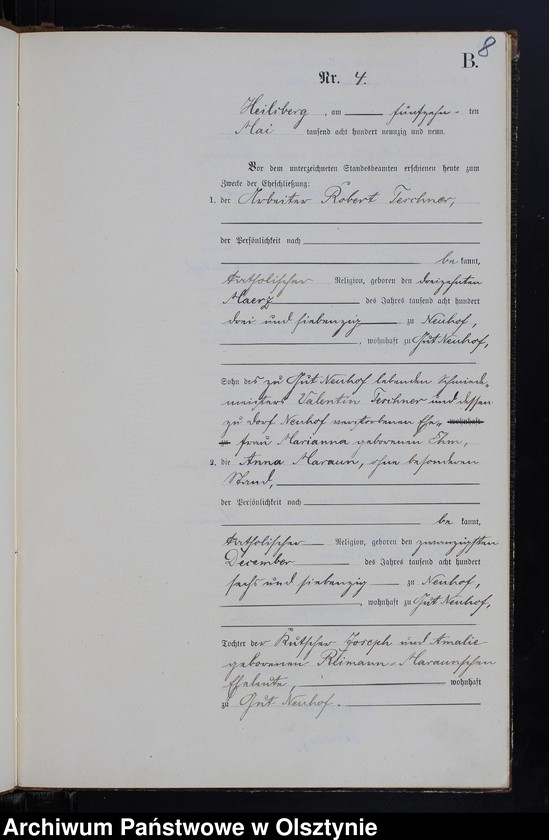 8
B.
Nr. 4.
Heilsberg, am fünfzehn-ten
Mai tausend acht hundert neunzig und neun.
Vor dem unterzeichneten Standesbeamten erschienen heute zum
Zwecke der Eheschließung:
1. der Arbeiter Robert Terchner,
der Persönlichkeit nach
be kannt,
katholischer Religion, geboren den dreizehnten
Maerz des Jahres tausend acht hundert
drei und siebenzig zu Neuhof,
, wohnhaft zu Gut Neuhof,
Sohn des zu Gut Neuhof lebenden Schmiede-
meisters Valentin Terchner und dessen
zu Dorf Neuhof verstorbenen Ehe- wohnhaft
zu frau Marianna geborenen Ihm,
2. die Anna Maraun, ohne besonderen
Stand,
der Persönlichkeit nach
be kannt,
katholischer Religion, geboren den zwanzigsten
December des Jahres tausend acht hundert
sechs und siebenzig zu Neuhof,
, wohnhaft zu Gut Neuhof,
Tochter der Kutscher Joseph und Amalie
geborenen Klimann-Maraunschen
Eheleute, wohnhaft
zu Gut Neuhof.
Archiwum Państwowe w Olsztynie